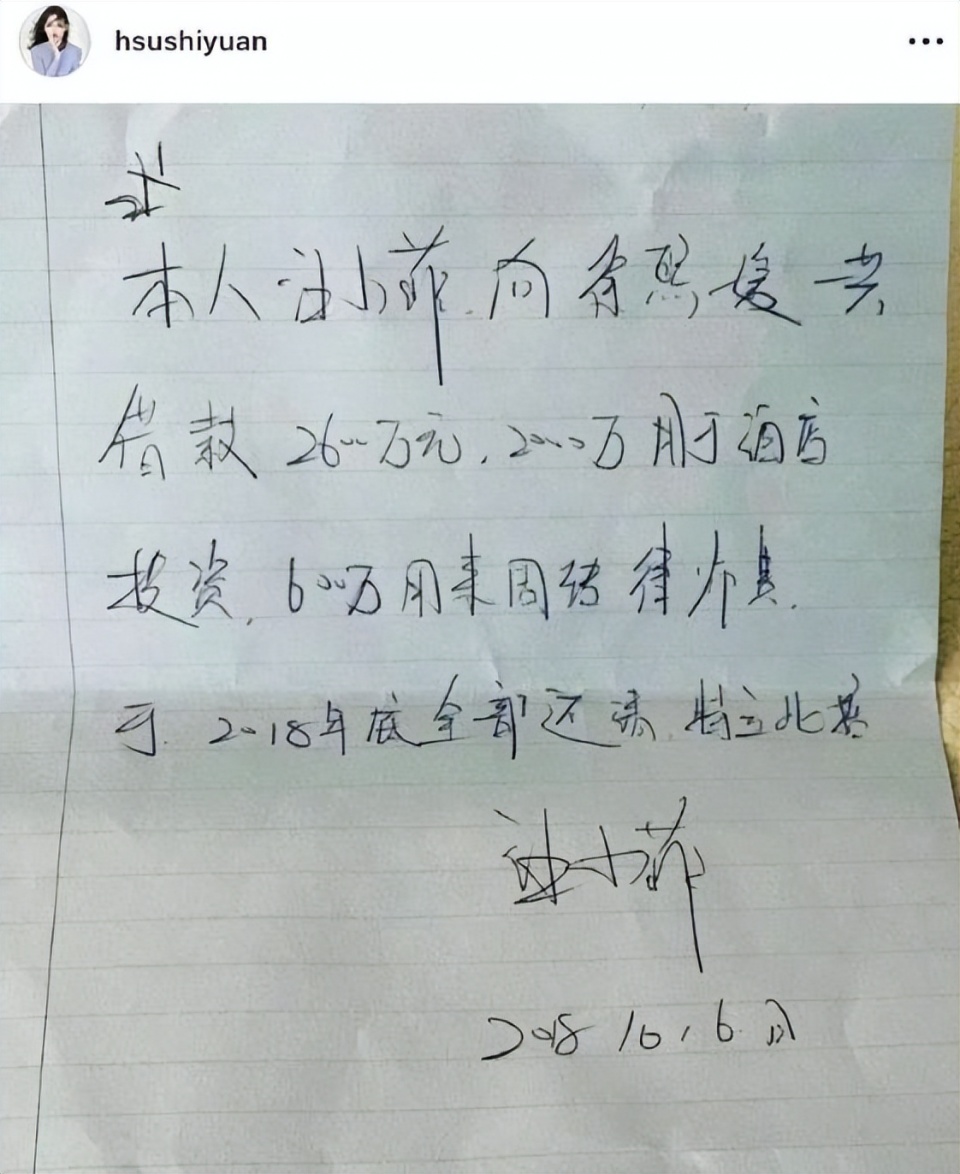 hsushiyuan
本人汪小菲向徐熙媛共
借款2600万元，2000万用于酒店
投资，600万用来周转律师费。
于2018年底全部还清，特立此据
汪小菲
2018 10，6